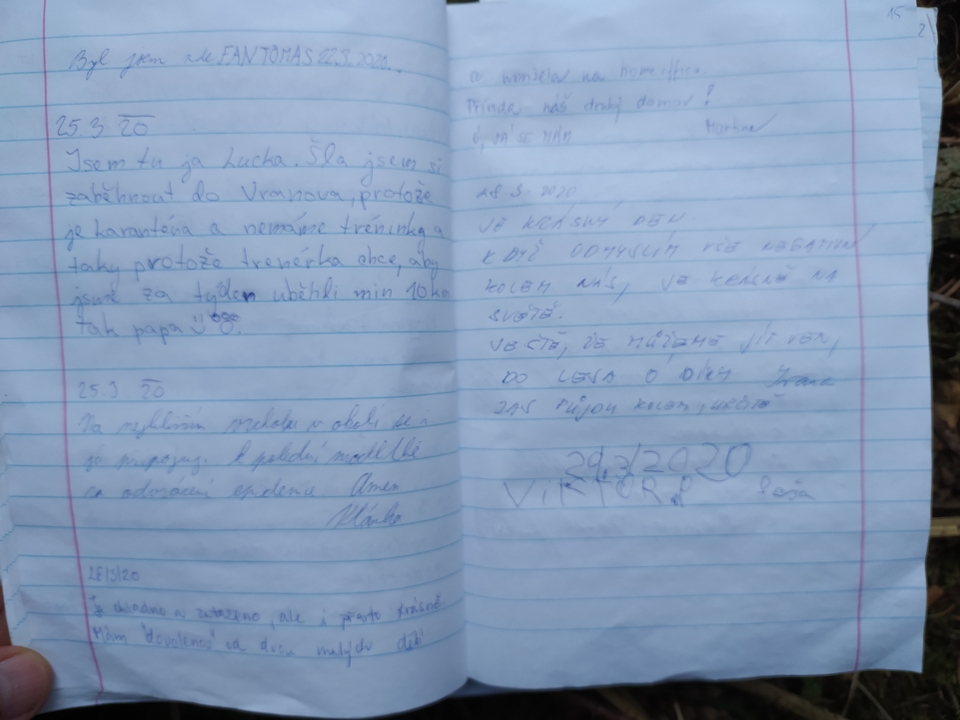 Byl jsem zde FANTOMAS 22.3.2020.
25.3 20
Jsem tu ja Lucka. Šla jsem si
zaběhnout do Vranova, protože
je karanténa a nemáme tréninky a
taky protože trenérka chce, aby
jsme za týden uběhli min 10 km
tak papa
25.3 20
Na nejbližším vrcholu v okolí se i
já připojuji k polední modlitbě
za odvrácení epidemie Amen
26/3/20
Je chladno a zataženo, ale i přesto krásně
Mám "dovolenou" od dvou malých dětí
a manžela na home office.
Příroda, náš druhý domov!
Martina
28.3.2020
JE KRÁSNÝ DEN
KDYŽ ODMYSLÍM VŠE NEGATIVNÍ
KOLEM NÁS, JE KRÁSNĚ NA
SVĚTĚ.
JEŠTĚ, ŽE MŮŽEME JÍT VEN,
DO LESA DÍKY
ZAS PŮJDU KOLEM, URČITĚ
29.3/2020
VIKTOR
15
2